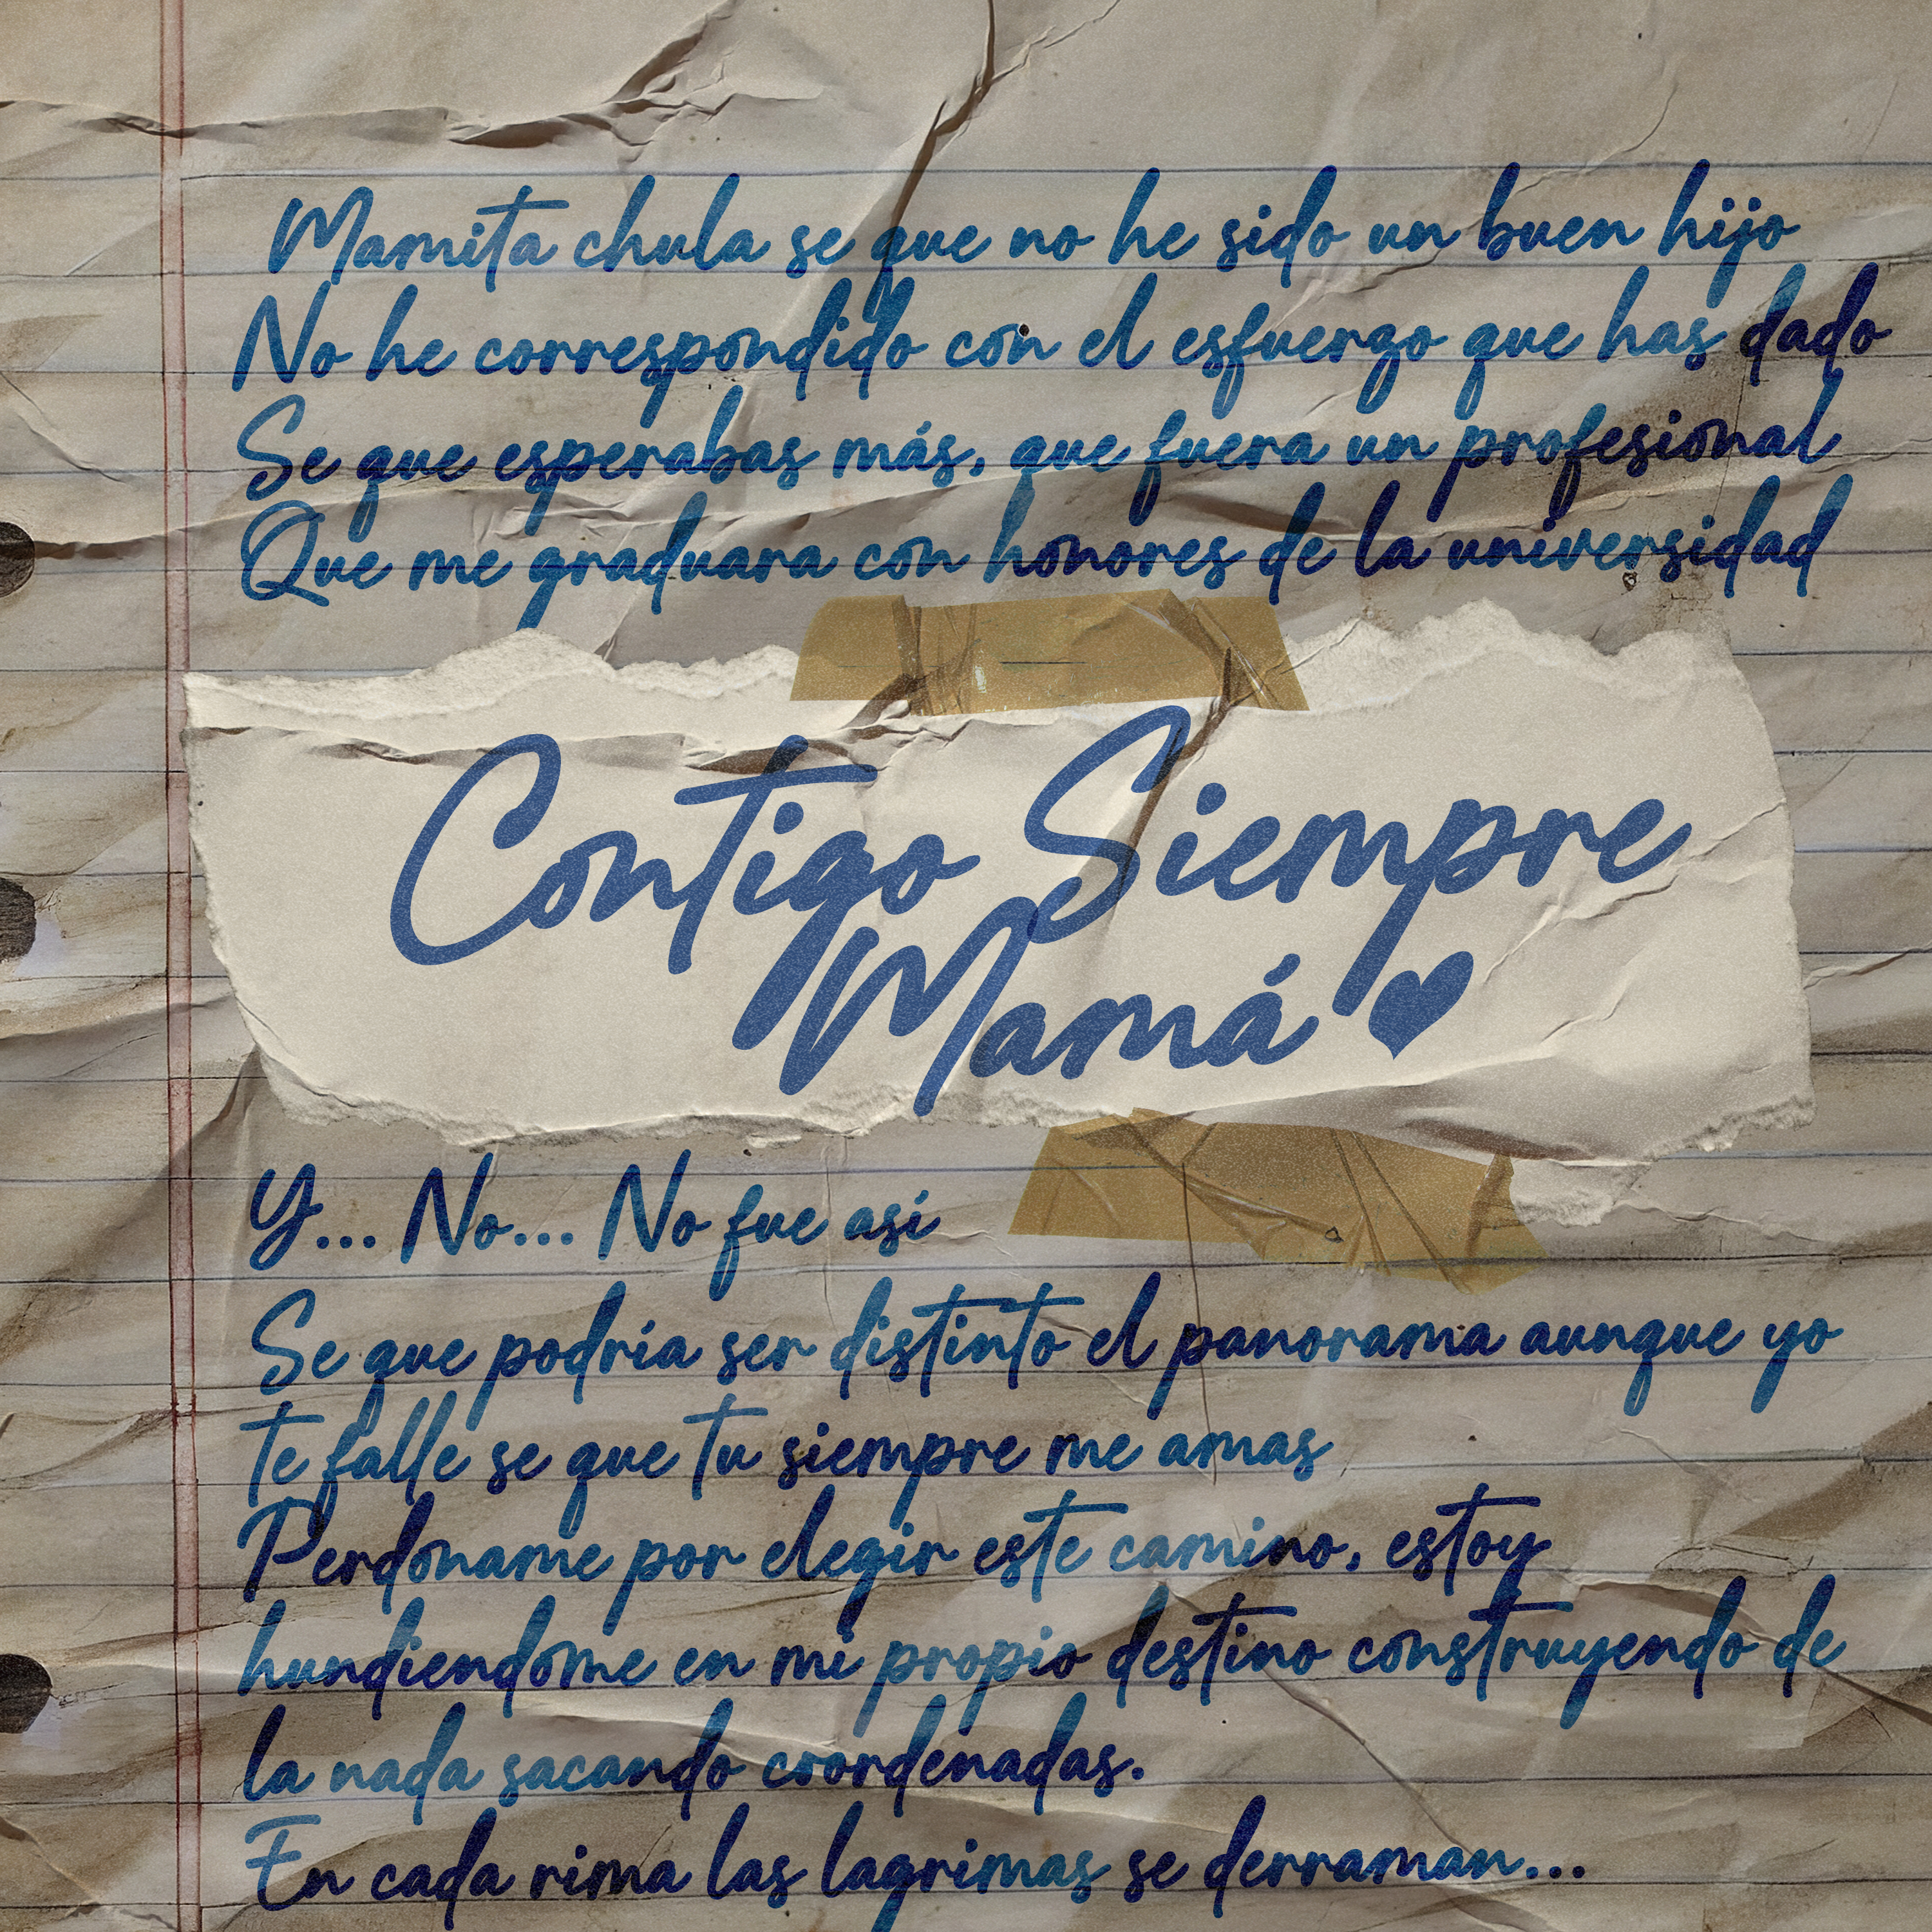 Mamita chula se que no he sido un buen hijo
No he correspondido con el esfuerzo que has dado
Se que esperabas más, que fuera un profesional
Que me graduara con honores de la universidad
Contigo Siempre
Mamá
Y... No... No fue así
Se que podría ser distinto el panorama aunque yo
te falle se que tu siempre me amas
Perdoname por elegir este camino, estoy
hundiendome en mi propio destino construyendo de
la nada sacando coordenadas.
En cada rima las lagrimas se derraman...